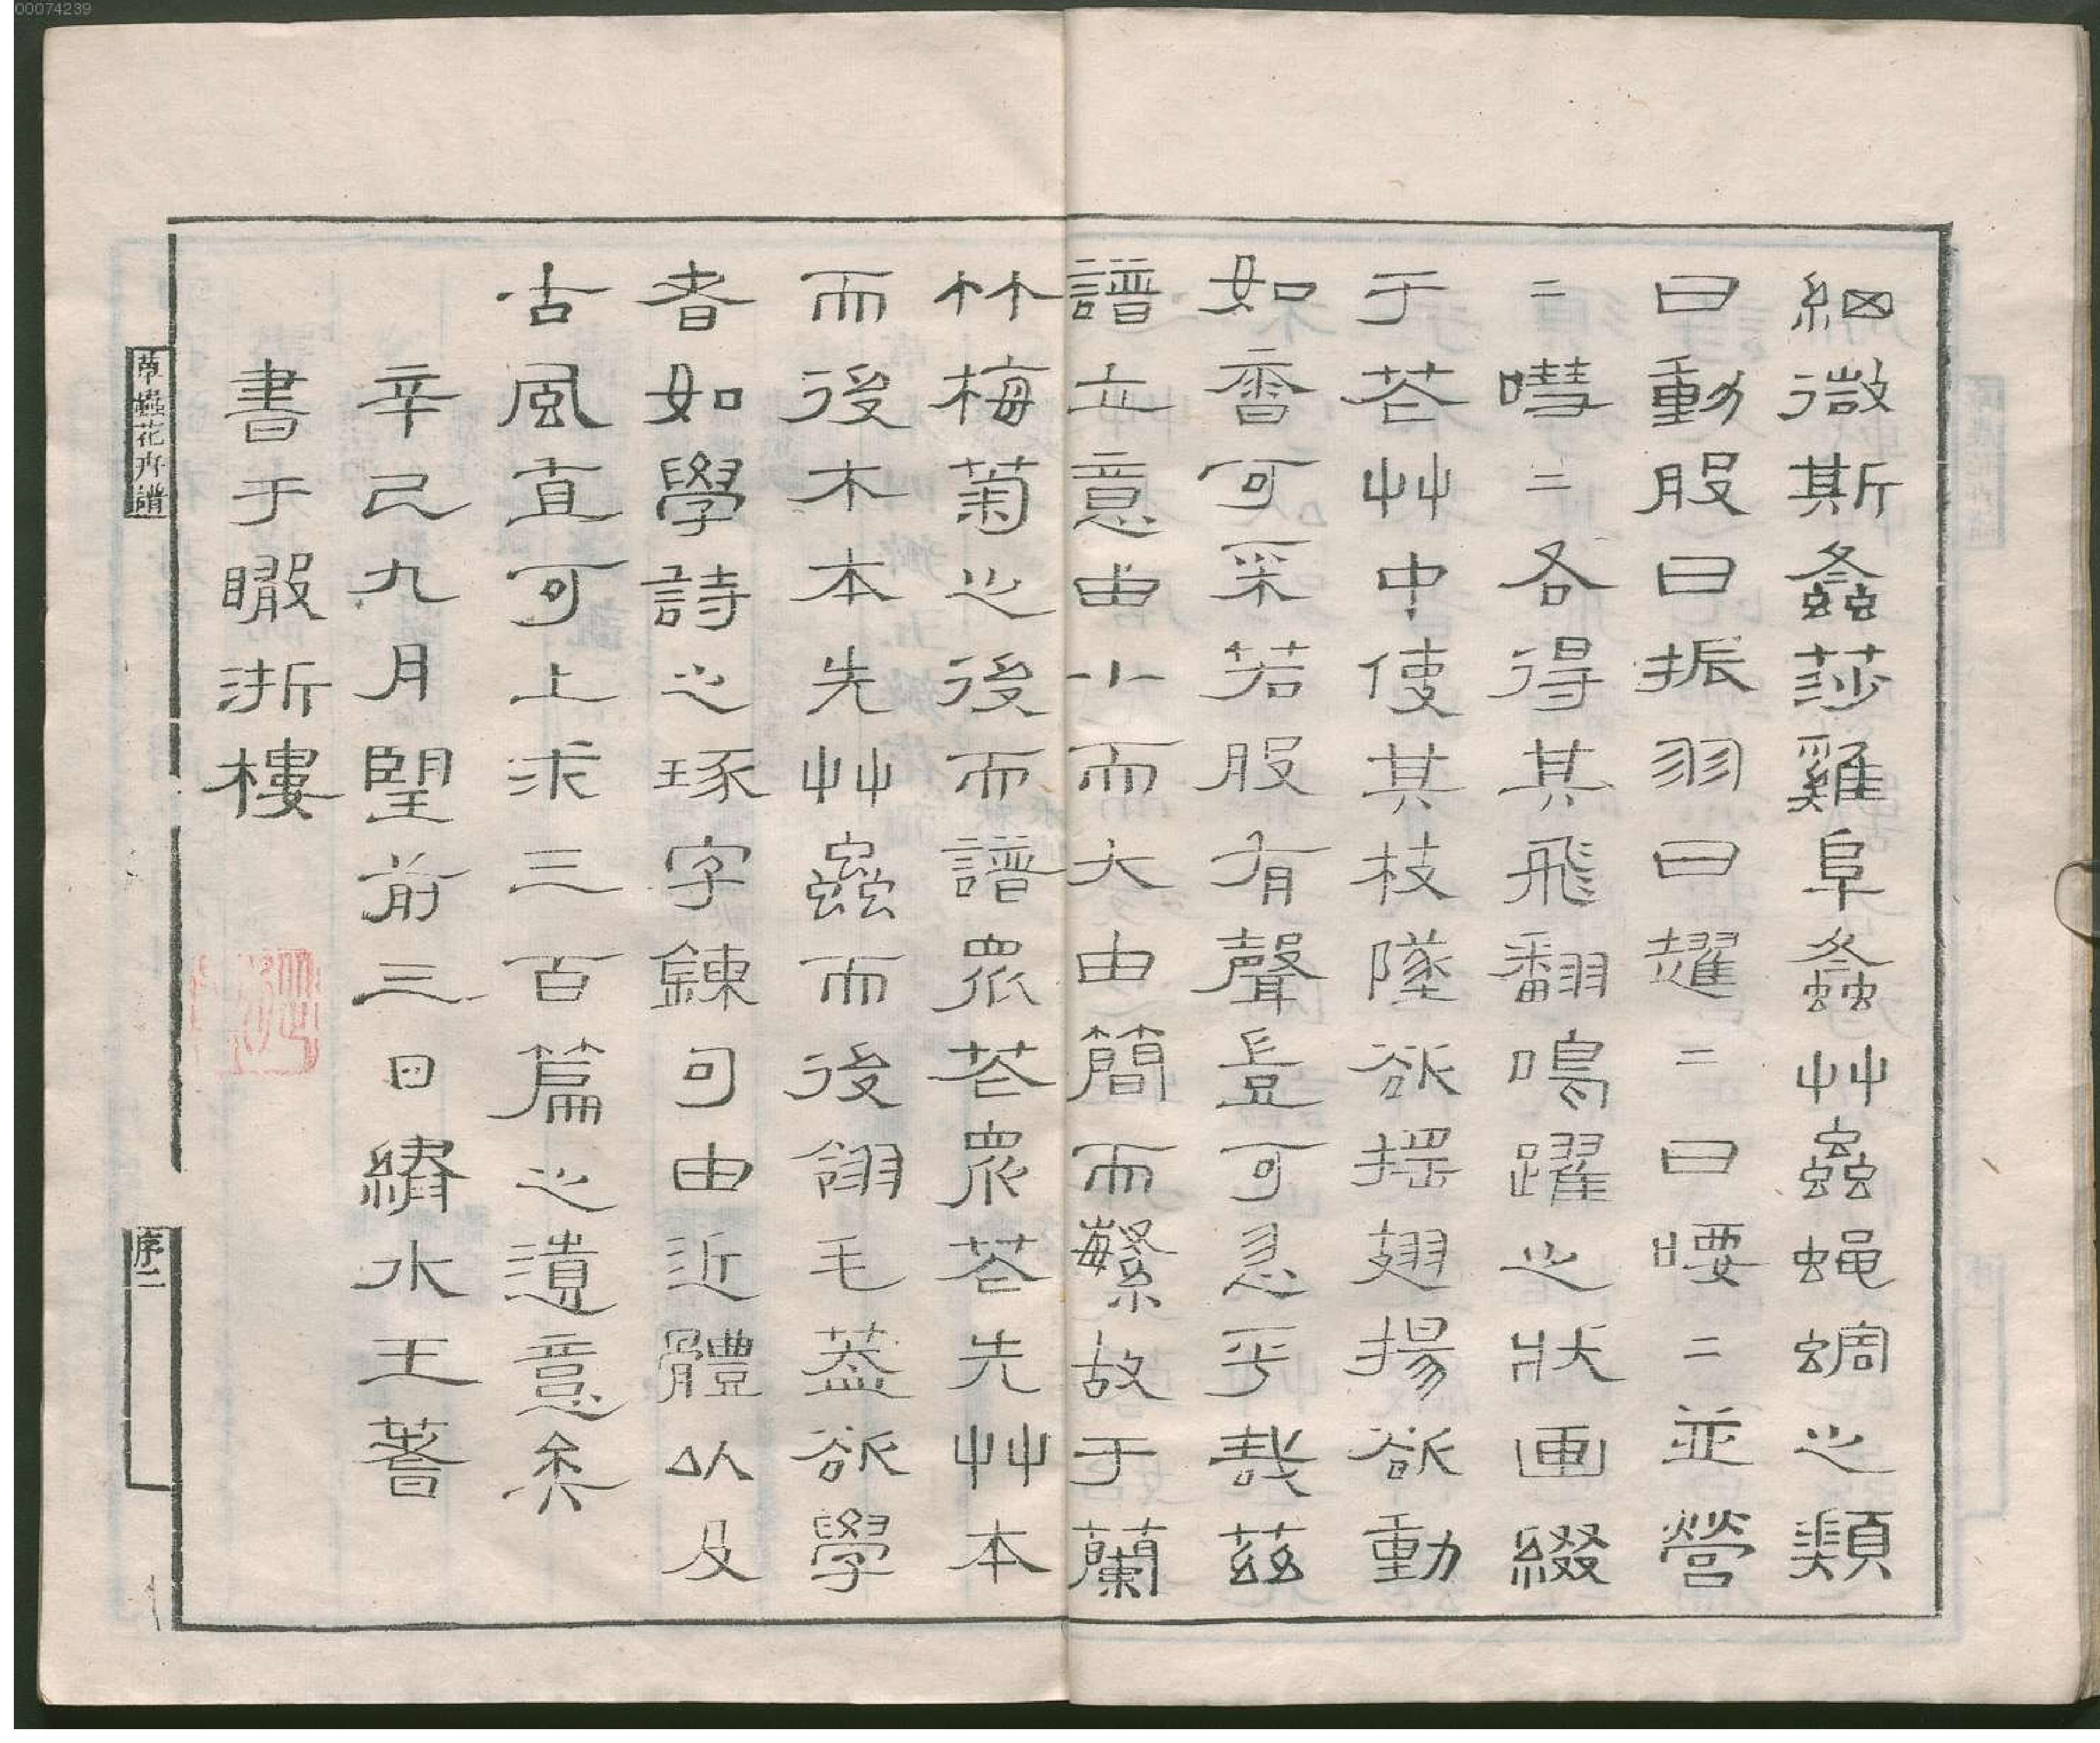 00074239
細微斯螽莎雞阜螽艸蟲蝇蜩之類
曰動股曰振羽曰趯二曰喓二並營
二嘒二各得其飛翻鳴躍之狀画綴
于苍艸中使其枝墜欲摇翅揚欲動
如香可采若股有聲豈可忽乎哉茲
譜立意由小而大由簡而繁故于蘭
竹梅菊之後而譜眾苍眾苍先艸本
而後木本先艸蟲而後翎毛蓋欲學
者如學詩之琢字鍊句由近體以及
古風直可上求三百篇之遺意矣
辛己九月朢前三日繡水王蓍
書于睱浙樓
草蟲花卉譜
序二